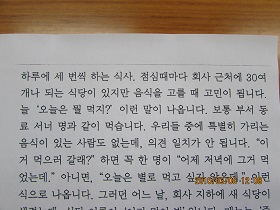 하루에 세 번씩 하는 식사. 점심때마다 회사 근처에 30여
개나 되는 식당이 있지만 음식을 고를 때 고민이 됩니다.
늘 ‘오늘은 뭘 먹지?’ 이런 말이 나옵니다. 보통 부서 동
료 서너 명과 같이 먹습니다. 우리들 중에 특별히 가리는
음식이 있는 사람도 없는데, 의견 일치가 안 됩니다. “이
거 먹으러 갈래?” 하면 꼭 한 명이 “어제 저녁에 그거 먹
었는데.” 아니면, “오늘은 별로 먹고 싶지 않은데.” 이런
식으로 나옵니다. 그러던 어느 날, 회사 지하에 새 식당이